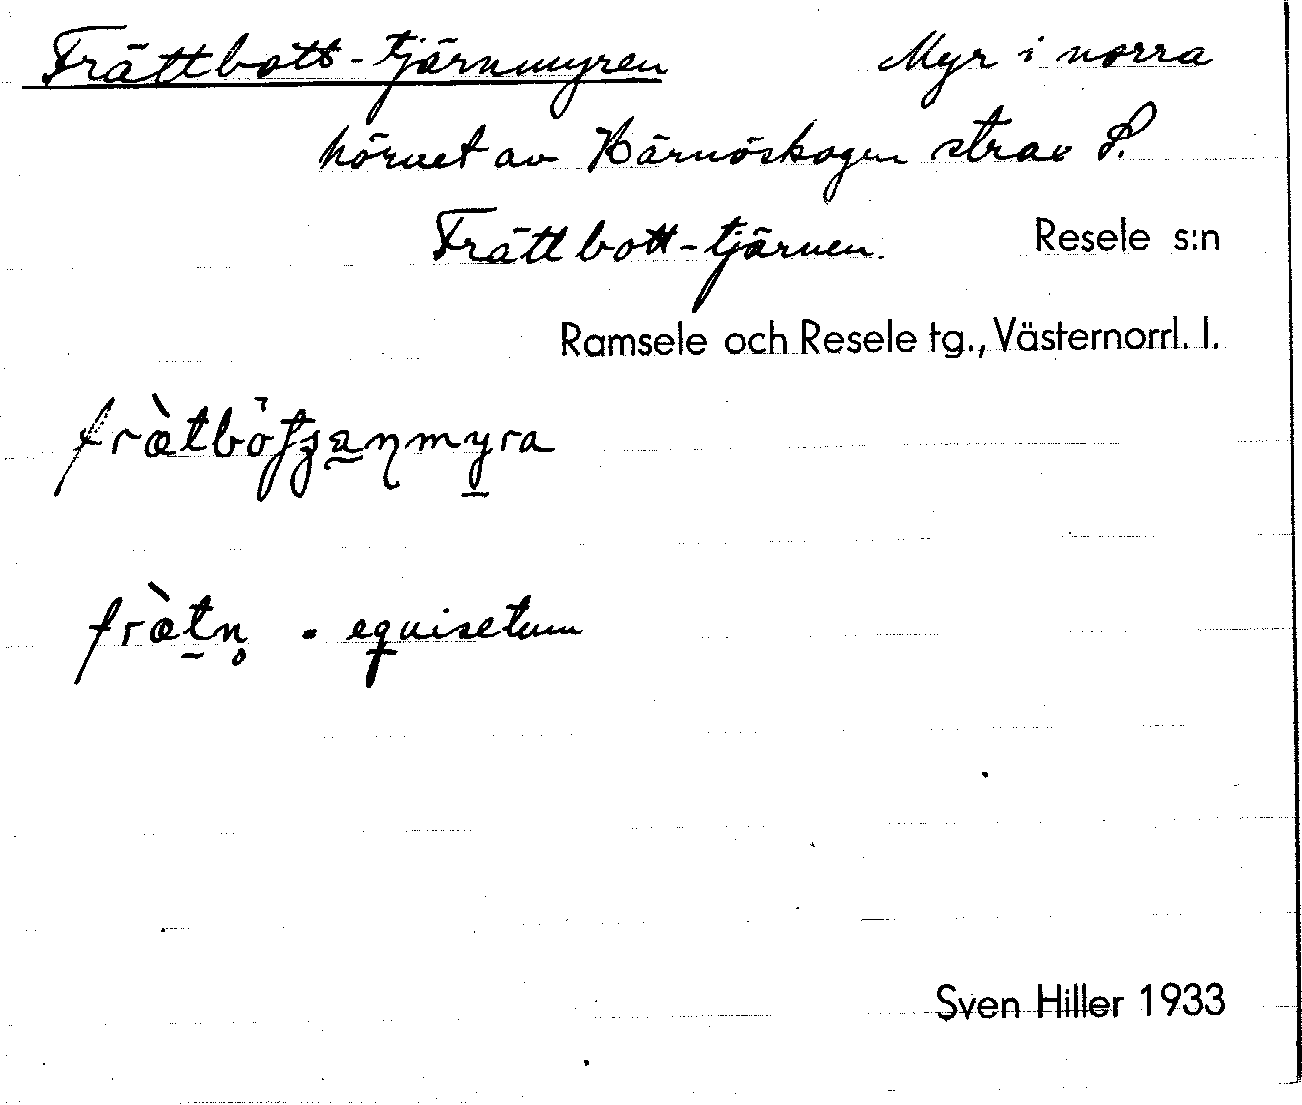 Frättbott-tjärnmyren Myr i norra
hörnet av Härnöskogen strax S.
Frättbott-tjärnen. Resele s:n
Ramsele och Resele tg., Västernorrl. l.
- equisetum
Sven Hiller 1933